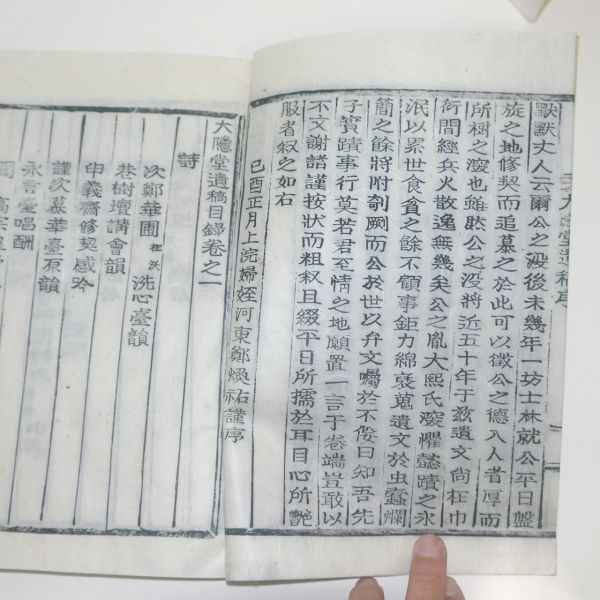 默默丈人云爾公之沒後未幾年一坊士林就公平日盤
旋之地修契而追慕之於此可以徵公之德入人者厚而
所樹之深也雖然公之沒將近五十年于玆遺文尙在巾
衍間經兵火散逸無幾矣公之胤大熙氏深懼懿蹟之永
泯以累世食貧之餘不顧事鉅力綿裒蒐遺文於虫蠹爛
簡之餘將附剞劂而公於世以弁文囑於不佞曰知吾先
子實蹟事行莫若君至情之地願置一言于卷端豈敢以
不文謝諮謹按狀而粗叙且綴平日所擩於耳目心所艶
服者叙之如右
己酉正月上浣婦姪河東鄭煥祐謹序
大隱堂遺稿目錄卷之一
詩
次鄭華圃 洗心臺韻
巷樹壇講會韻
申義齋修契感吟
謹次慕華臺原韻
永言臺唱酬